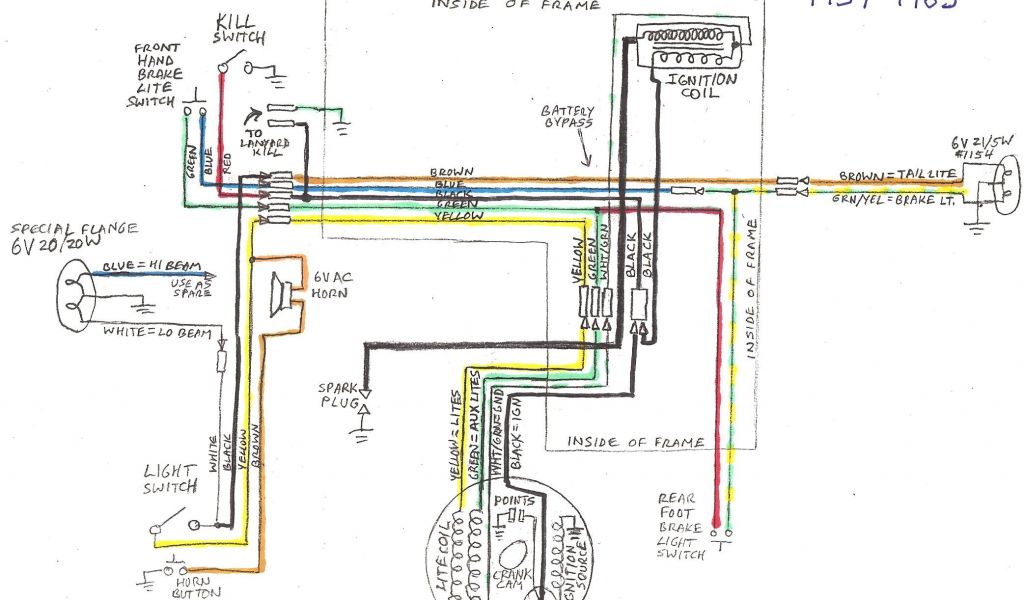 INSIDE OF FRAME
KILL
SWITCH
FRONT
HAND
BRAKE
LITE
SWITCH
GREEN
BLUE
RED
TO
LANYARD
KILL
BATTERY
BYPASS
IGNITION
COIL
6V 21/5W
#1154
BROWN
BLUE
BLACK
GREEN
YELLOW
BROWN = TAIL LITE
GRN/YEL = BRAKE LT.
SPECIAL FLANGE
6V 20/20W
BLUE = HI BEAM
USE AS
SPARE
WHITE = LO BEAM
6VAC
HORN
YELLOW
GREEN
WHT/GRN
BLACK
BLACK
INSIDE OF FRAME
SPARK
PLUG
INSIDE OF FRAME
WHITE
BLACK
YELLOW
BROWN
YELLOW = LITES
GREEN = AUX LITES
WHT/GRN=GND
BLACK = IGN
LIGHT
SWITCH
HORN
BUTTON
POINTS
LITE COIL
CRANK
CAM
IGNITION
SOURCE
REAR
FOOT
BRAKE
LIGHT
SWITCH